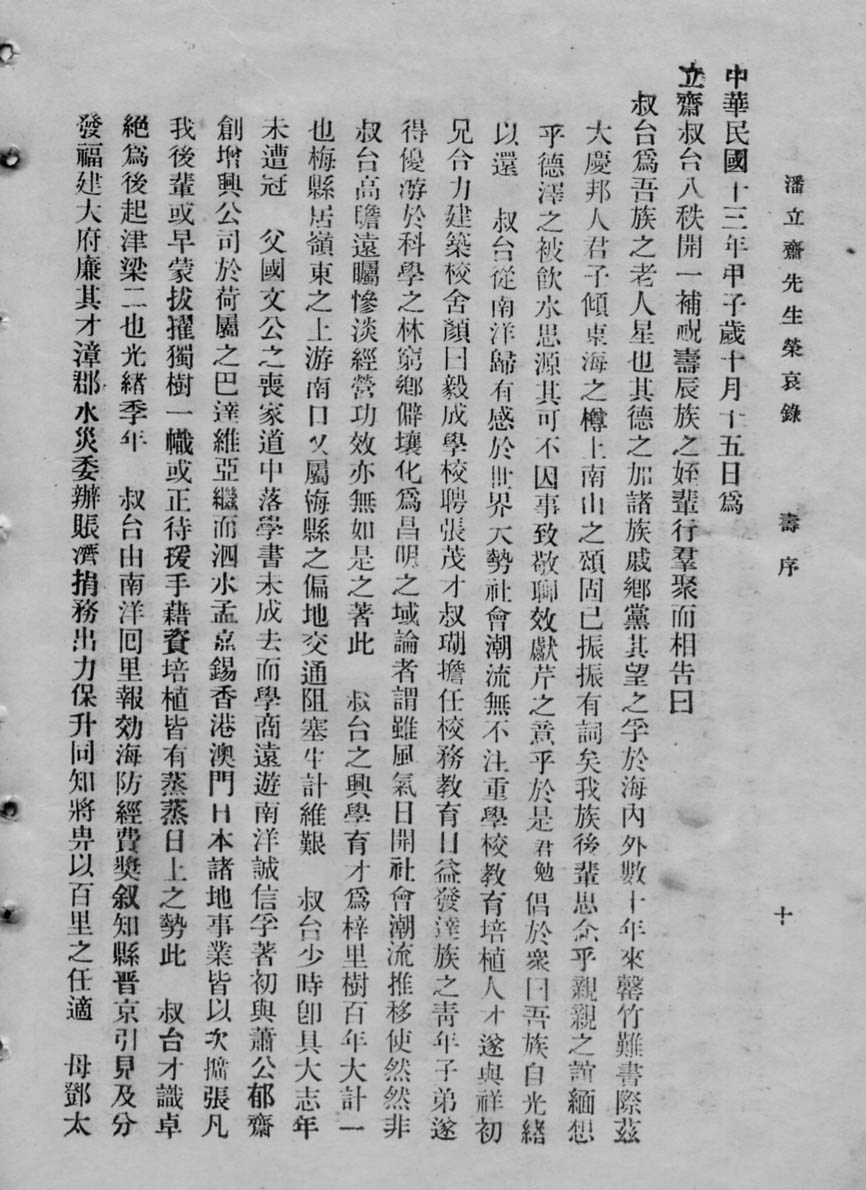 潘立齋先生榮哀錄　壽序　十
中華民國十三年甲子歲十月十五日爲
立齋叔台八秩開一補祝壽辰族之姪輩行羣聚而相告曰
叔台爲吾族之老人星也其德之加諸族戚鄉黨其望之孚於海內外數十年來罄竹難書際茲
大慶邦人君子傾東海之樽上南山之頌固已振振有詞矣我族後輩思念乎親親之誼緬想
乎德澤之被飮水思源其可不因事致敬聊效獻芹之意乎於是君勉倡於衆曰吾族自光緖
以還　叔台從南洋歸有感於世界大勢社會潮流無不注重學校教育培植人才遂與祥初
兄合力建築校舍顏曰毅成學校聘張茂才叔瑚擔任校務教育日益發達族之靑年子弟遂
得優游於科學之林窮鄉僻壤化爲昌明之域論者謂雖風氣日開社會潮流推移使然然非
叔台高瞻遠矚慘淡經營功效亦無如是之著此　叔台之興學育才爲梓里樹百年大計一
也梅縣居嶺東之上游南口又屬梅縣之偏地交通阻塞生計維艱　叔台少時卽具大志年
未遭冠　父國文公之喪家道中落學書未成去而學商遠遊南洋誠信孚著初與蕭公郁齋
創增興公司於荷屬之巴達維亞繼而泗水孟烹錫香港澳門日本諸地事業皆以次擴張凡
我後輩或早蒙拔擢獨樹一幟或正待援手藉資培植皆有蒸蒸日上之勢此　叔台才識卓
絕爲後起津梁二也光緖季年　叔台由南洋囘里報効海防經費獎叙知縣晋京引見及分
發福建大府廉其才漳郡水災委辦賑濟捐務出力保升同知將畀以百里之任適　母鄧太